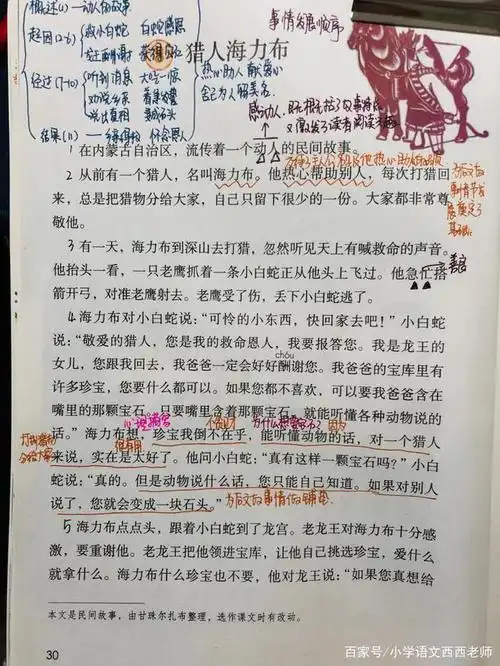 概述(1)—动人的故事
起因(2-6)
救小白蛇 白蛇感恩
龙王酬谢 获得宝石
经过(7-10)
听到消息 大吃一惊
劝说乡亲 着急
说出真相 变成石头
结果(11)
热心助人
事情发展顺序
猎人海力布
感动人
1 在内蒙古自治区,流传着一个动人的民间故事。
2 从前有一个猎人,名叫海力布。他热心帮助别人,每次打猎回
来,总是把猎物分给大家,自己只留下很少的一份。大家都非常尊
敬他。
3 有一天,海力布到深山去打猎,忽然听见天上有喊救命的声音。
他抬头一看,一只老鹰抓着一条小白蛇正从他头上飞过。他急忙搭
箭开弓,对准老鹰射去。老鹰受了伤,丢下小白蛇逃了。
4 海力布对小白蛇说:“可怜的小东西,快回家去吧!”小白蛇
说:“敬爱的猎人,您是我的救命恩人,我要报答您。我是龙王的
女儿,您跟我回去,我爸爸一定会好好酬谢您。我爸爸的宝库里有
chóu
许多珍宝,您要什么都可以。如果您都不喜欢,可以要我爸爸含在
嘴里的那颗宝石。只要嘴里含着那颗宝石,就能听懂各种动物说的
话。”海力布想,珍宝我倒不在乎,能听懂动物的话,对一个猎人
来说,实在是太好了。他问小白蛇:“真有这样一颗宝石吗?”小白
蛇说:“真的。但是动物说什么话,您只能自己知道。如果对别人
说了,您就会变成一块石头。”
为后文的事情做铺垫
5 海力布点点头,跟着小白蛇到了龙宫。老龙王对海力布十分感
激,要重谢他。老龙王把他领进宝库,让他自己挑选珍宝,爱什么
就拿什么。海力布什么珍宝也不要,他对龙王说:“如果您真想给
本文是民间故事,由甘珠尔扎布整理,选作课文时有改动。
30
百家号/小学语文西西老师